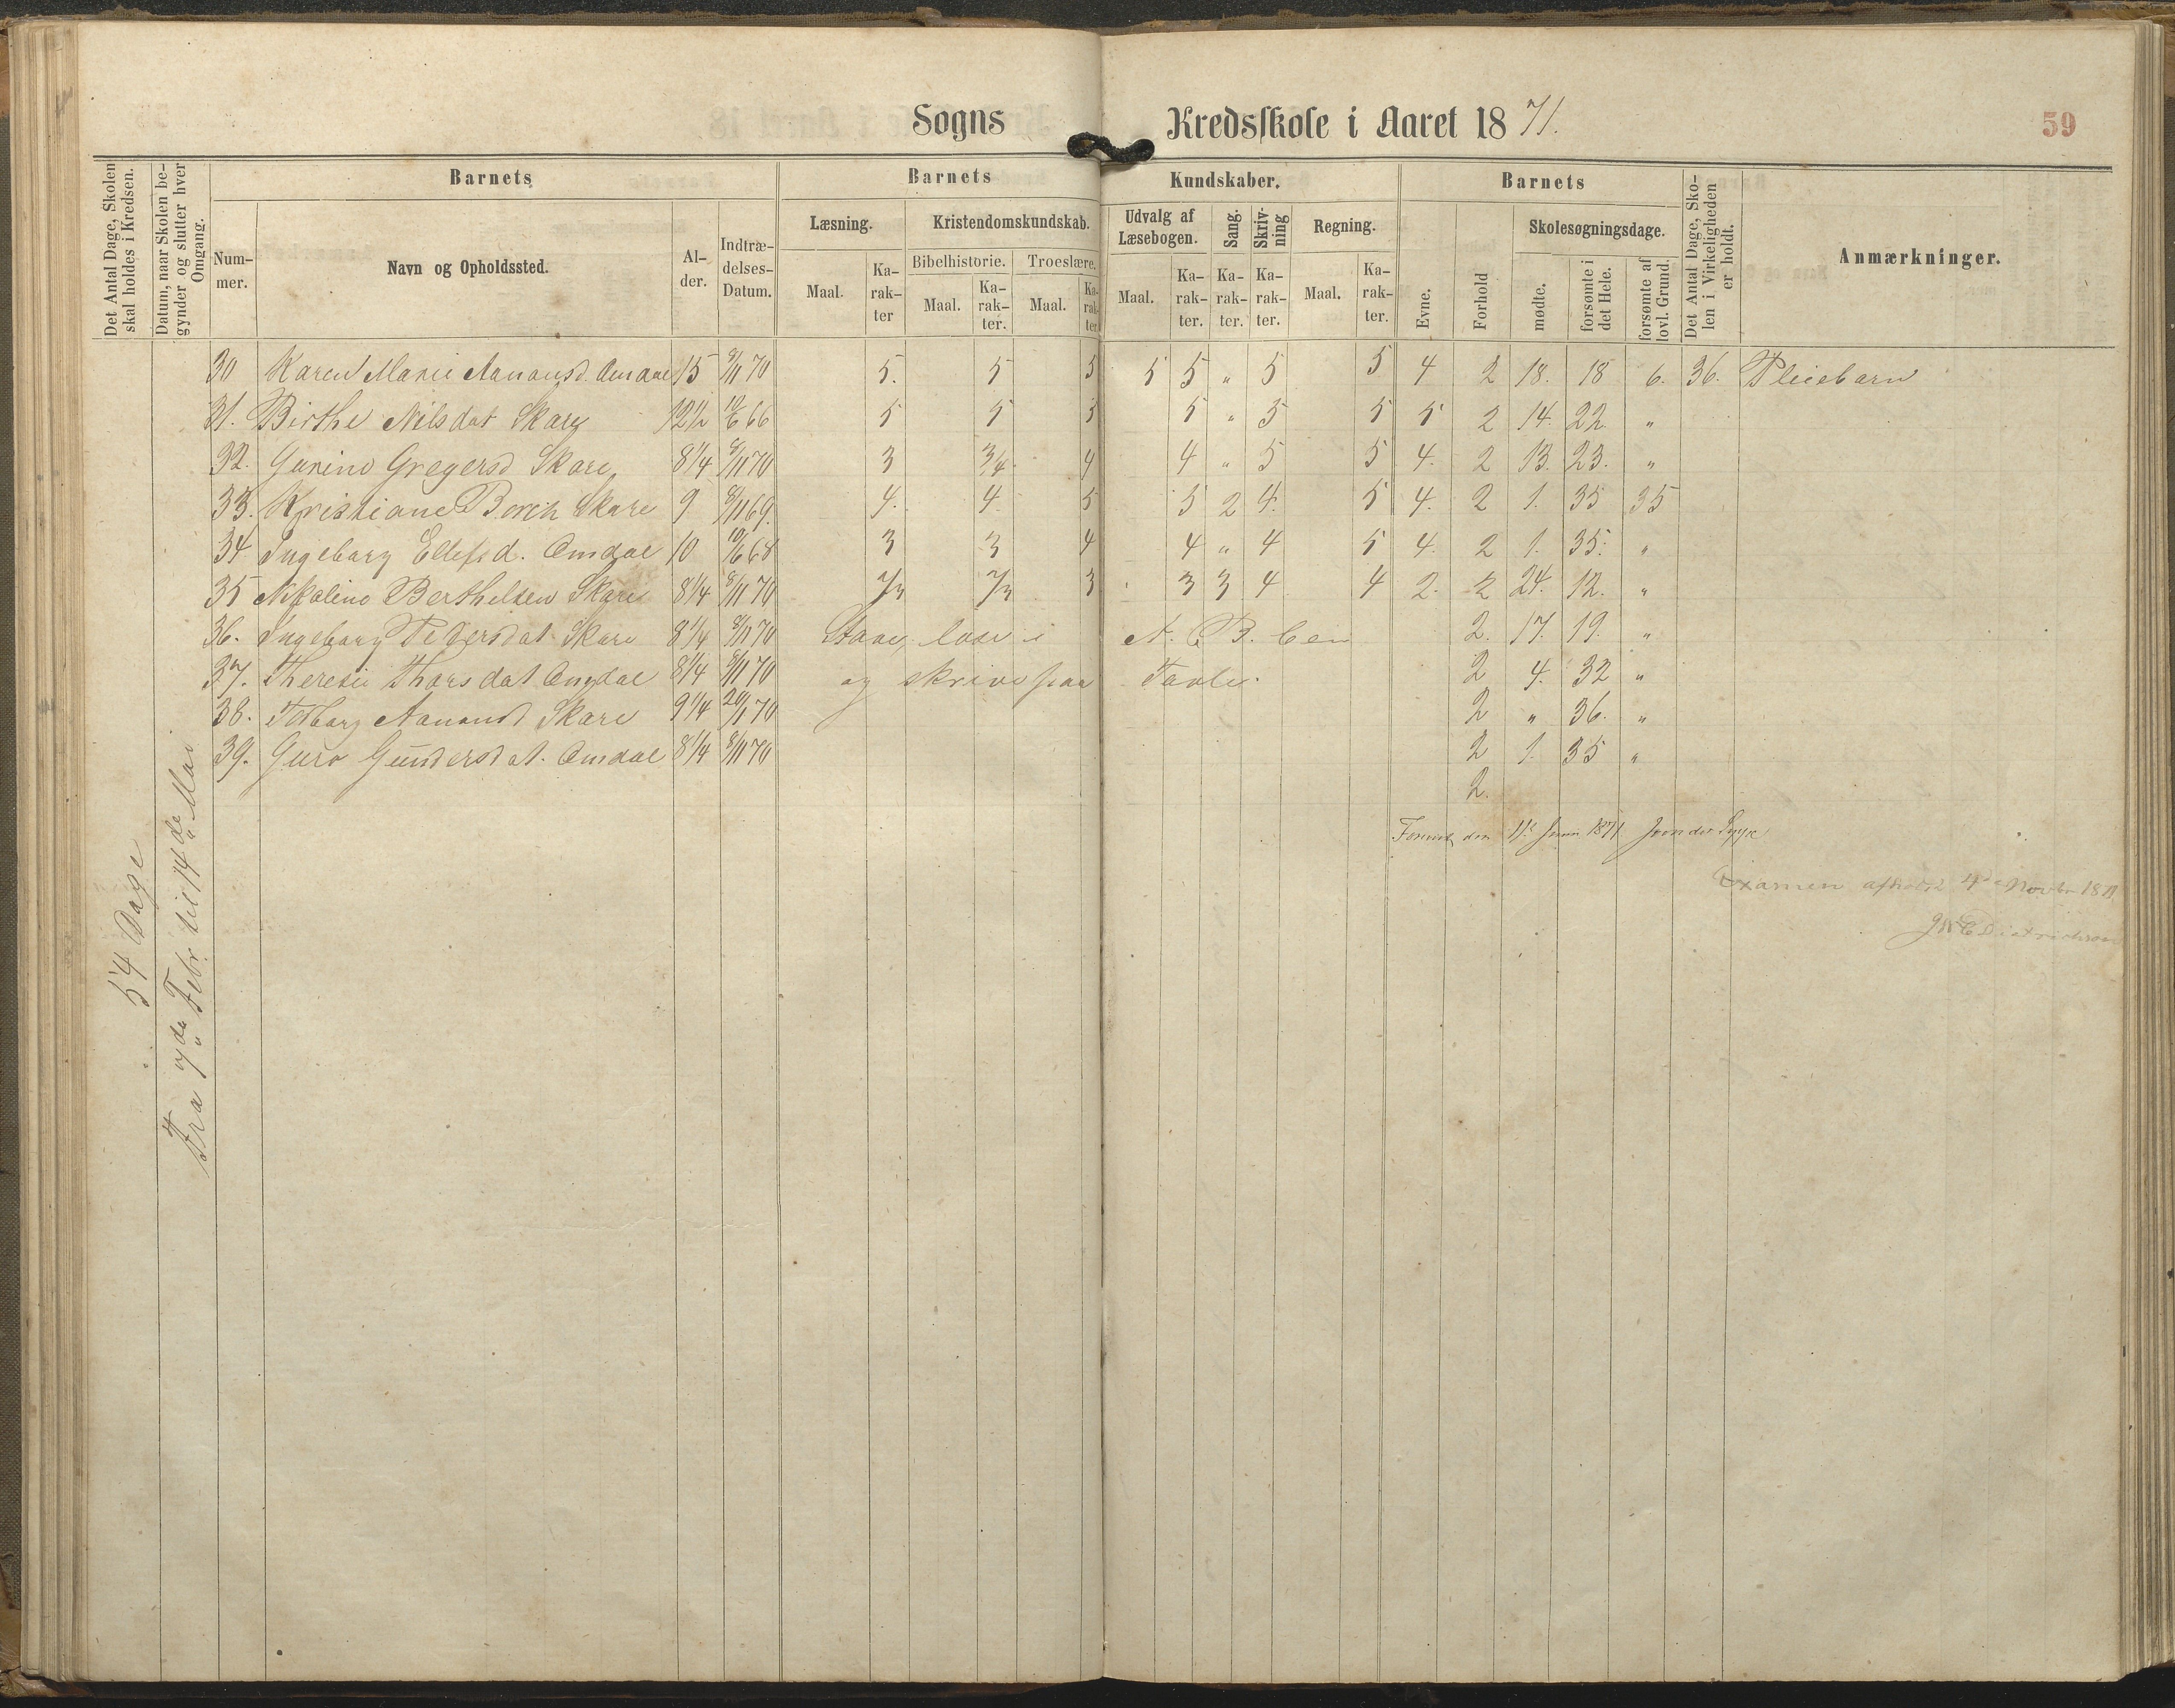 Sogns Kredsskole i Aaret 1871.
59
Det Antal Dage, Skolen skal holdes i Kredsen.
Datum, naar Skolen begynder og slutter hver Omgang.
Barnets Barnets Kundskaber. Barnets
Det Antal Dage, Skolen i Virkeligheden er holdt.
Anmærkninger.
Nummer. Navn og Opholdssted. Alder. Indtrædelses-Datum.
Læsning. Kristendomskundskab. Udvalg af Læsebogen. Sang. Skrivning Regning. Evne. Forhold Skolesøgningsdage.
Bibelhistorie. Troeslære.
Maal. Karakter Maal. Karakter. Maal. Karakter Maal. Karakter. Karakter. Karakter. Maal. Karakter. mødte. forsømte i det Hele. forsømte af lovl. Grund.
30 Karen Marie Aanonsd. Omdal 15 8/11 70 5. 5 5 5 5 " 5 5 4 2 18. 18 6. 36. Pleiebarn
31. Birthe Nilsdat Skare 12½ 10/6 66 5 5 5 5 " 5 5 5 2 14. 22. "
32. Gurine Gregersd Skare 8¼ 8/11 70 3 3/4 4 4 " 5 5 4. 2 13. 23. "
33. Kristiane Berth Skare 9 8/11 69. 4. 4 5 5 2 4. 5 4. 2 1. 35 35
34 Ingeborg Ellefsd. Omdal 10 10/6 68 3 3 4 4 " 4 5 4. 2 1. 35. "
35 Berthelsen Skare 8¼ 8/11 70 2/3 2/3 3 3 3 4 4 2. 2 24. 12. "
36. Ingeborg Pedersdat Skare 8¼ 8/11 70 Staar, læse i A. B. Cen 2. 17. 19. "
37. Theresie Thorsdat Omdal 8¼ 8/11 70 og skrive paa Tavle. 2 4. 32 "
38. Aanonsd Skare 9¼ 70 2 " 36. "
39. Guro Gundersdat. Omdal 8¼ 8/11 70 2 1. 35 "
2.
54 Dage
Fra 7de Febr. til 14de Mai
den Juni 1871
Examen afholdt 4de Novbr 1871
Dietrichson